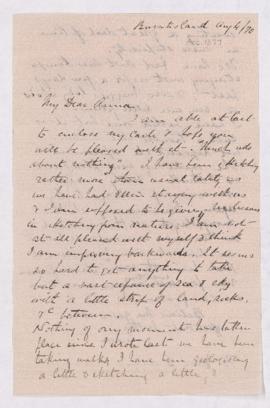 Burntisland Aug 4/90
Acc. 1377
My Dear Anna
I am able at last
to enclose my card & hope you
will be pleased with it. "Much ado
about nothing". I have been sketching
rather more than usual lately as
we have had Ellen staying with us
& I am supposed to be giving her lessons
in sketching from nature. I am not
at all pleased with myself & think
I am improving backwards. It seems
so hard to get anything to take
but a vast expanse of sea & sky
with a little strip of land, rocks,
&c between.
Nothing of any moment has taken
place since I wrote last. we have been
taking walks, I have been geologising
a little & sketching a little, &